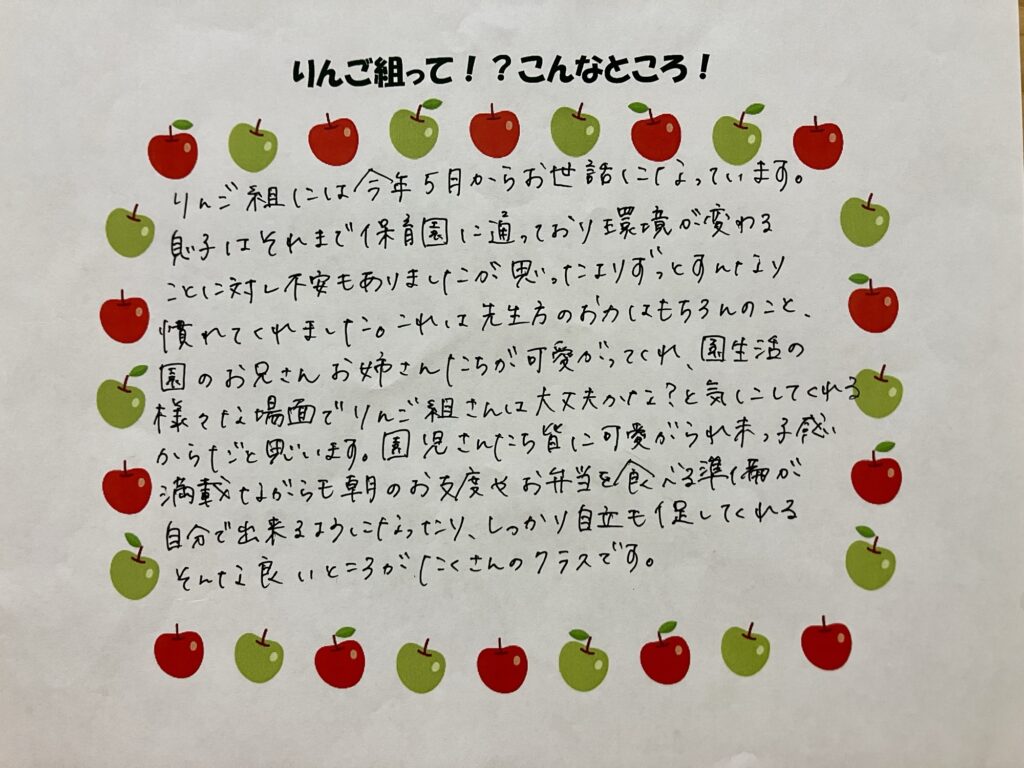 りんご組って！？こんなところ！
りんご組には今年5月からお世話になっています。
息子はそれまで保育園に通っており環境が変わる
ことに対し不安もありましたが思ったよりずっとすんなり
慣れてくれました。これは先生方のお力はもちろんのこと、
園のお兄さんお姉さんたちが可愛がってくれ、園生活の
様々な場面でりんご組さんは大丈夫かな？と気にしてくれる
からだと思います。園児さんたち皆に可愛がられ末っ子感
満載ながらも朝のお支度やお弁当を食べる準備が
自分で出来るようになったり、しっかり自立も促してくれる
そんな良いところがたくさんのクラスです。